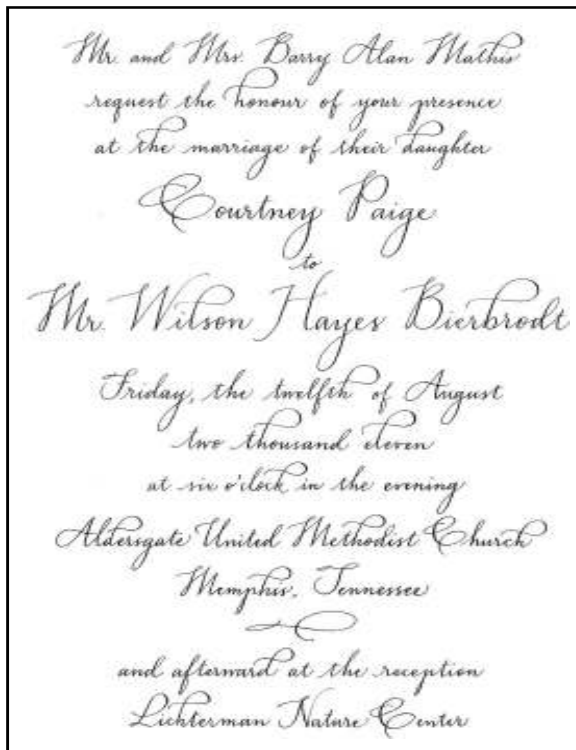 Mr. and Mrs. Barry Alan Mathis
request the honour of your presence
at the marriage of their daughter
Courtney Paige
to
Mr. Wilson Hayes Bierbrodt
Friday, the twelfth of August
two thousand eleven
at six o'clock in the evening
Aldersgate United Methodist Church
Memphis, Tennessee
and afterward at the reception
Lichterman Nature Center